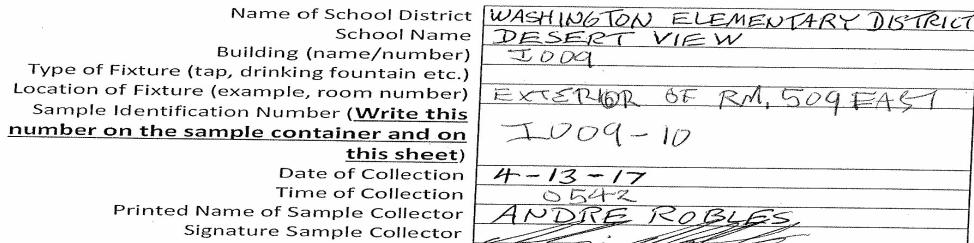 Name of School District WASHINGTON ELEMENTARY DISTRICT
School Name DESERT VIEW
Building (name/number) I009
Type of Fixture (tap, drinking fountain etc.)
Location of Fixture (example, room number) EXTERIOR OF RM. 509 EAST
Sample Identification Number (Write this
number on the sample container and on I009-10
this sheet)
Date of Collection 4-13-17
Time of Collection 0542
Printed Name of Sample Collector ANDRE ROBLES
Signature Sample Collector